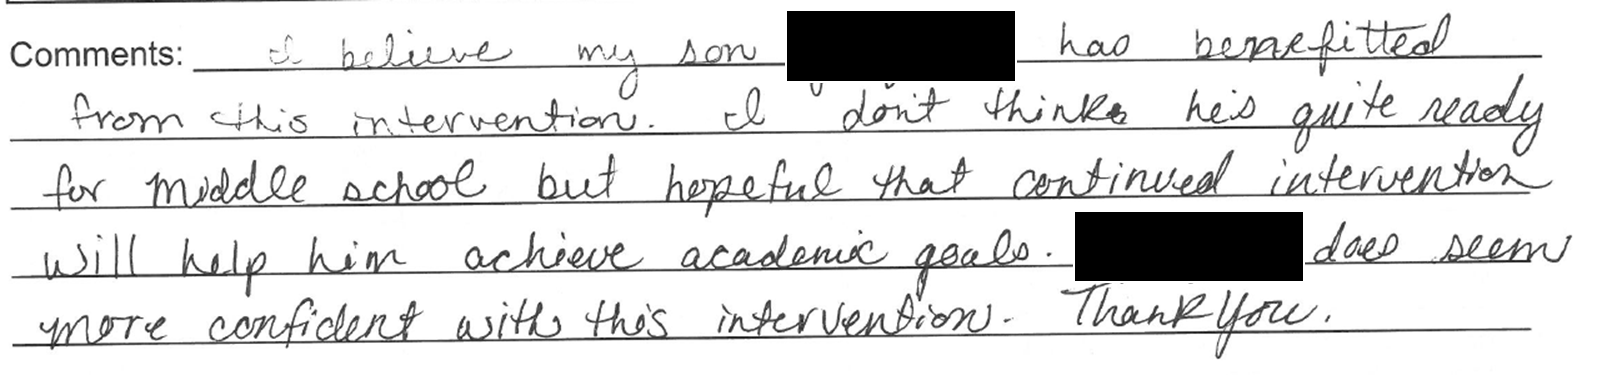 Comments: I believe my son has benefitted
from this intervention. I don't think he's quite ready
for middle school but hopeful that continued intervention
will help him achieve academic goals. does seem
more confident with this intervention. Thank you.